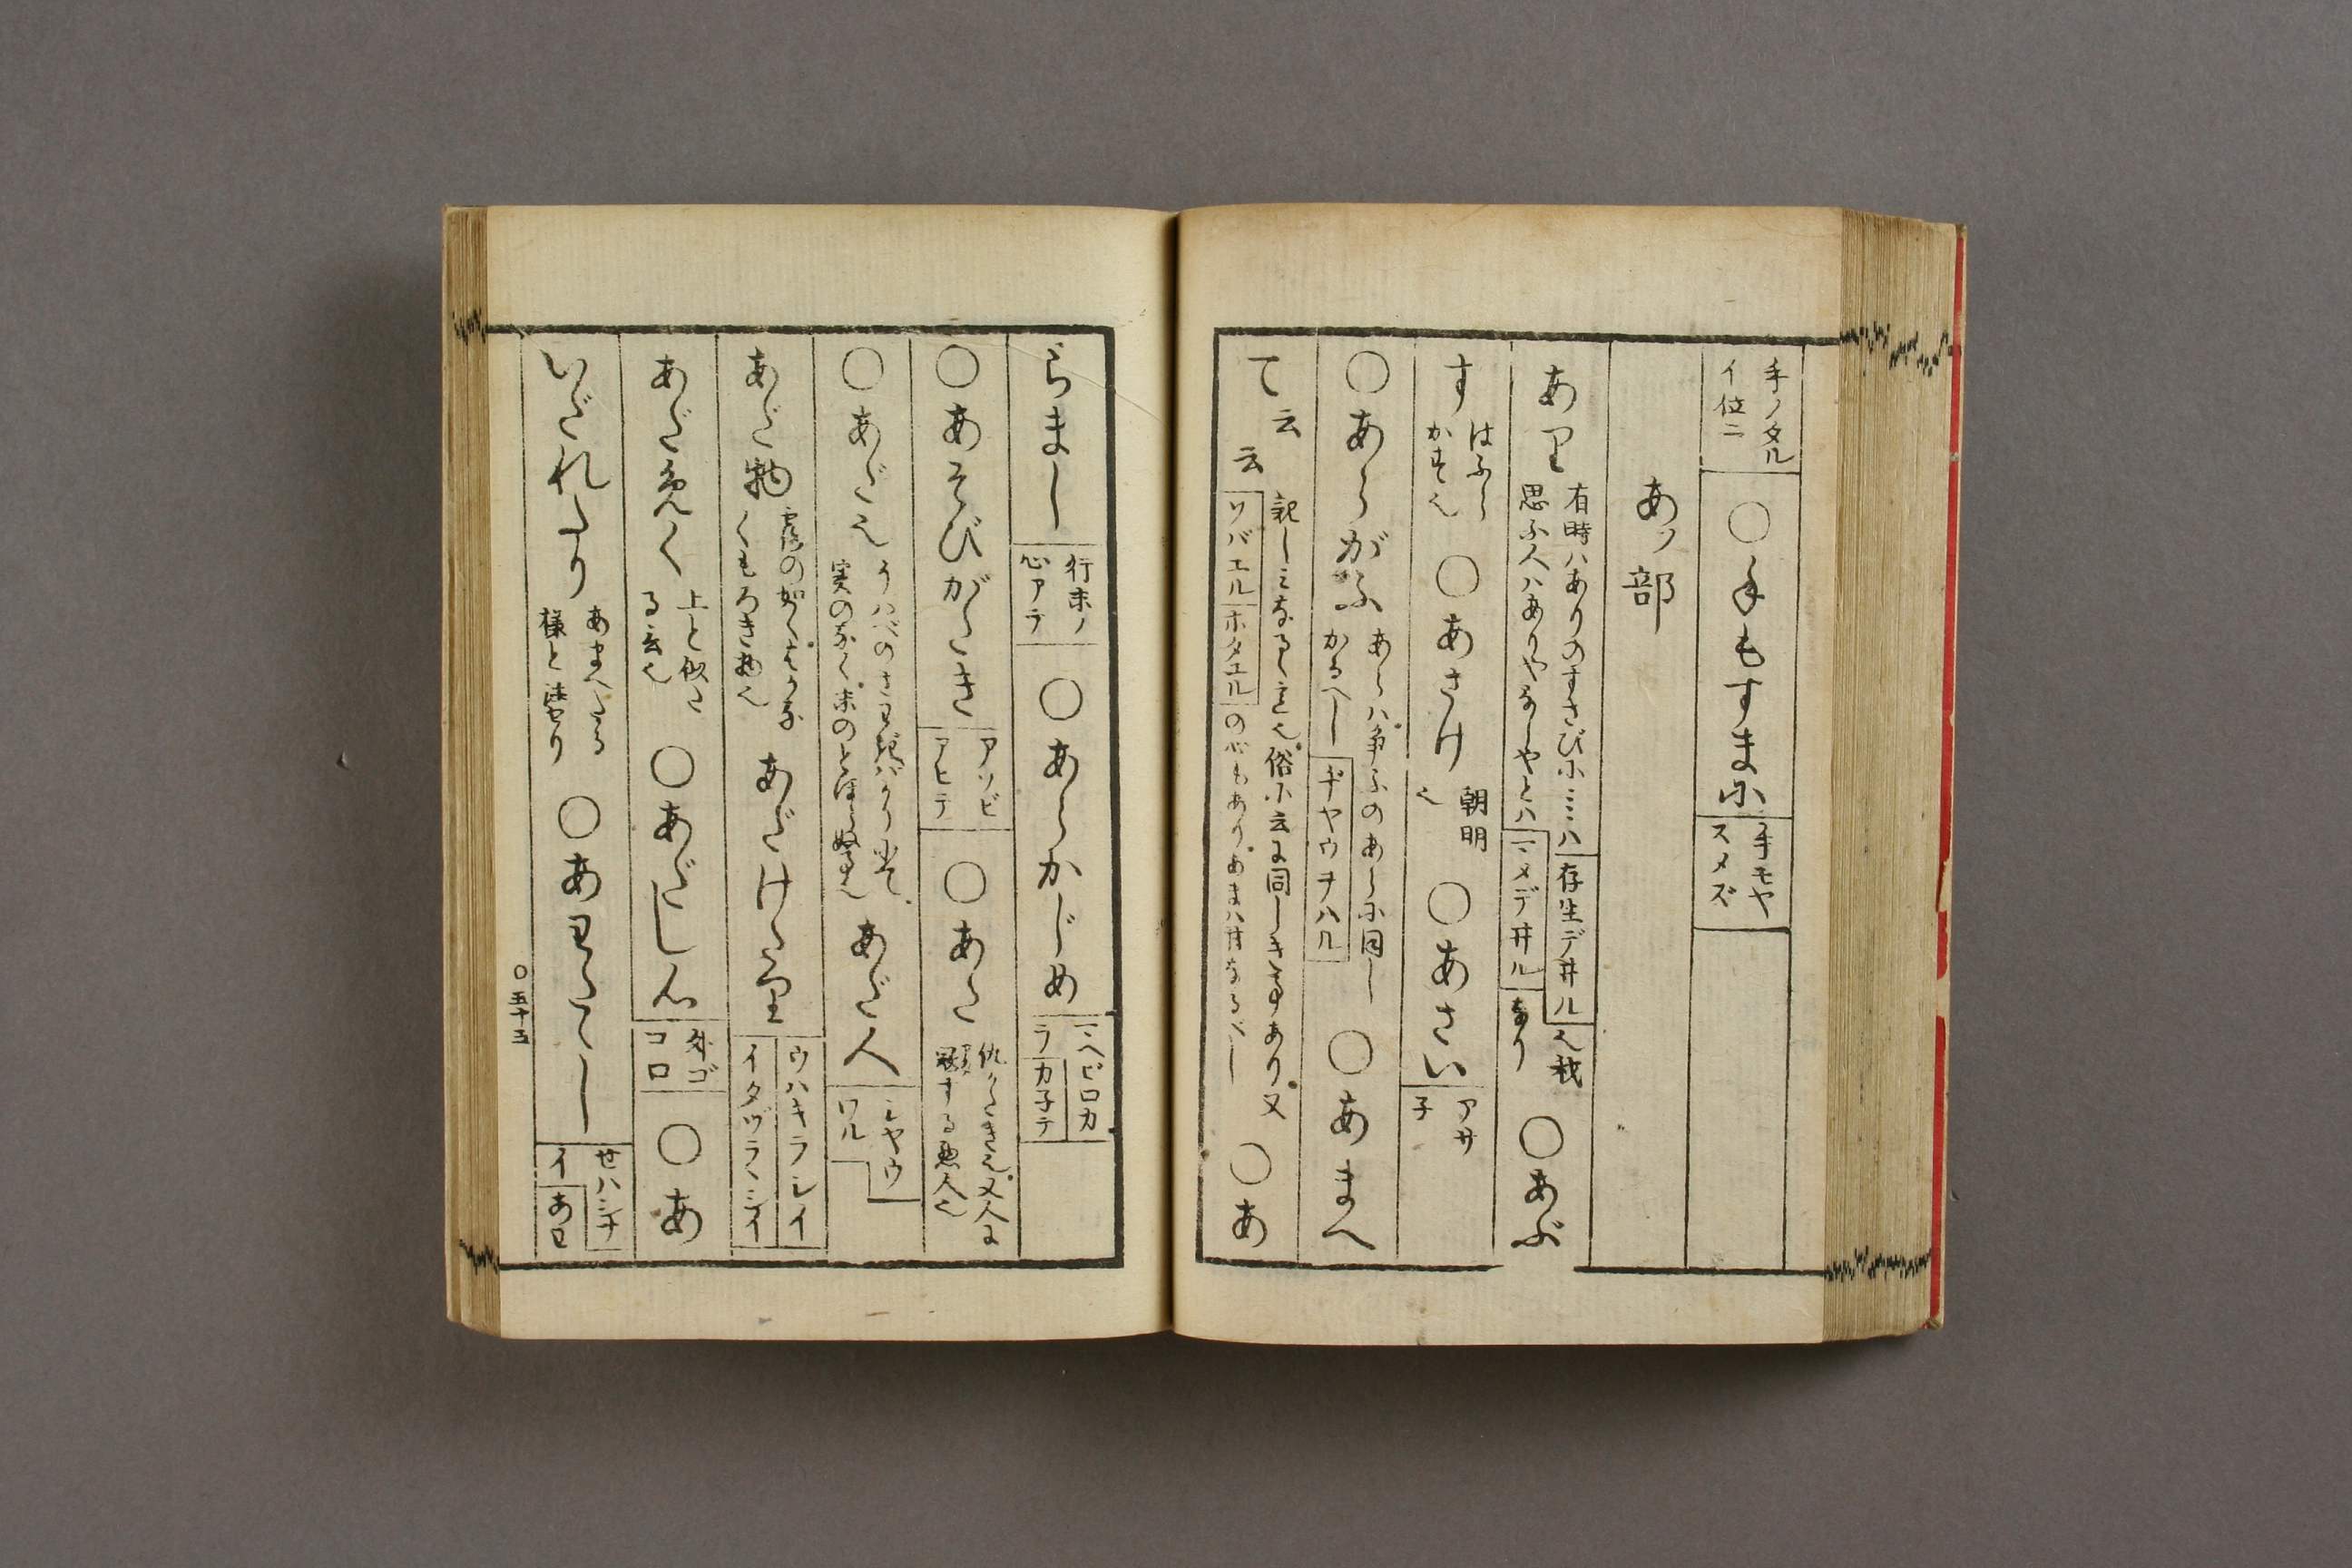 手ノタル
イ位ニ
○手もすまに
手モヤ
スメズ
あノ部
あり
有時ハありのすさびに ミミハ 存生デ井ル
思ふ人ハありやなしやとハ マメデ井ル なり
○あぶ
す
はふし
○あさけ
朝明
也
○あさい
アサ
子
○あらがふ
あらハ争ふのあらに同し
かるべし ギヤウヲハル
○あまへ
て
云
云
俗に云に同しき事あり又
ソバエル ホタエル の心もあり あまハ甘なるべし
○あ
らまし
行末ノ
心アテ
○あらかじめ
マヘビロカ
ラ カ子テ
○あそびがたき
アソビ
アヒテ
○あた
仇かたき也 又人に
する悪人也
○あだ也
実のなく末のとほらぬ事也
あだ人
シヤウ
ワル
あだ物
露の如くはかな
くもろき物也
あだけたり
ウハキラシイ
イタヅラヽシイ
あだめく
上と似た
る云也
○あだし心
外ゴ
コロ
○あ
いだれたり
あまへたる
様と註せり
○あわたゝし
せハシナ
イ あわ
○五十五